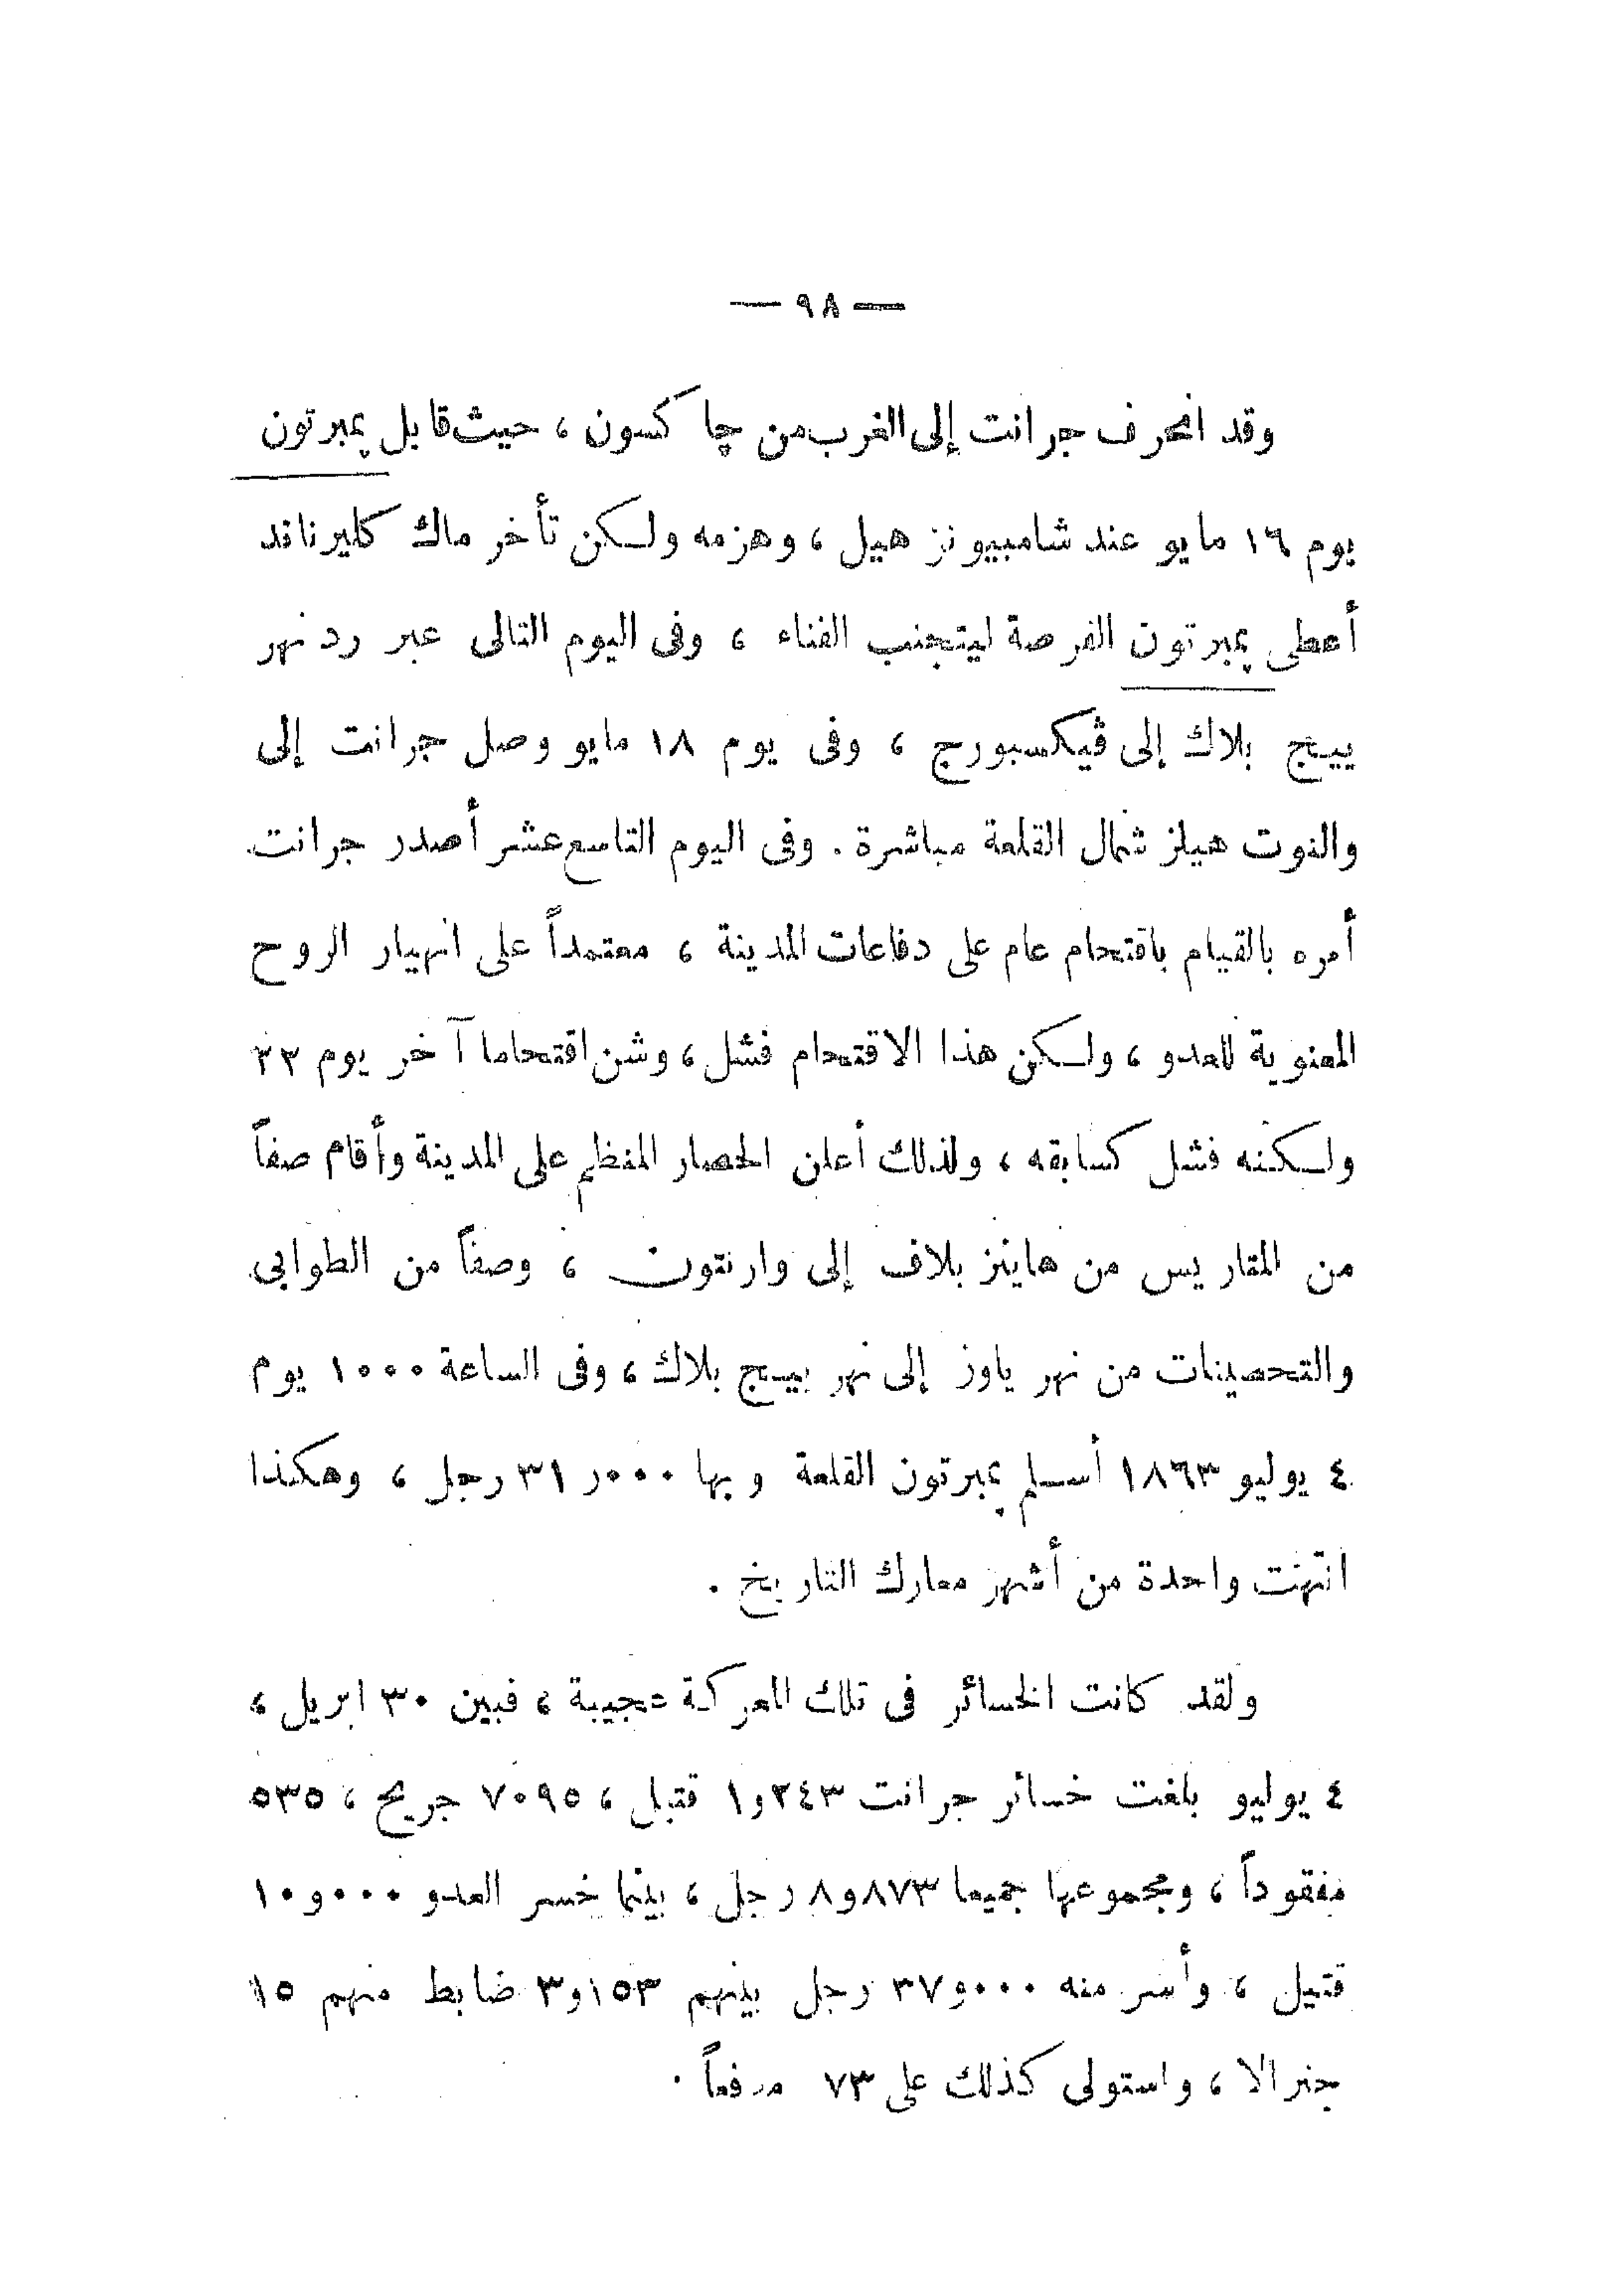 — ٩٨ —
وقد انحرف جرانت إلى الغرب من چاكسون ، حيث قابل پمبرتون
يوم ١٦ مايو عند شامبيونز هيل ، وهزمه ولكن تأخر ماك كليرناند
أعطى پمبرتون الفرصة ليتجنب الفناء ، وفى اليوم التالى عبر رد نهر
بييج بلاك إلى ڤيكسبورج ، وفى يوم ١٨ مايو وصل جرانت إلى
والنوت هيلز شمال القلعة مباشرة . وفى اليوم التاسع عشر أصدر جرانت
أمره بالقيام باقتحام عام على دفاعات المدينة ، معتمداً على انهيار الروح
المعنوية للعدو ، ولكن هذا الاقتحام فشل ، وشن اقتحاما آخر يوم ٢٢
ولكنه فشل كسابقه ، ولذلك أعلن الحصار المنظم على المدينة وأقام صفاً
من المتاريس من هاينز بلاف إلى وارنتون ، وصفاً من الطوابى
والتحصينات من نهر ياوز إلى نهر بييج بلاك ، وفى الساعة ١٠٠٠ يوم
٤ يوليو ١٨٦٣ أسلم پمبرتون القلعة وبها ٣١٫٠٠٠ رجل ، وهكذا
انتهت واحدة من أشهر معارك التاريخ .
ولقد كانت الخسائر فى تلك المعركة عجيبة ، فبين ٣٠ ابريل ،
٤ يوليو بلغت خسائر جرانت ١و٢٤٣ قتيل ، ٧٠٩٥ جريح ، ٥٣٥
مفقوداً ، ومجموعها جميعا ٨و٨٧٣ رجل ، بينما خسر العدو ١٠و٠٠٠
قتيل ، وأسر منه ٣٧و٠٠٠ رجل بينهم ٣و١٥٣ ضابط منهم ١٥
جنرالا ، واستولى كذلك على ٧٣ مدفعاً .